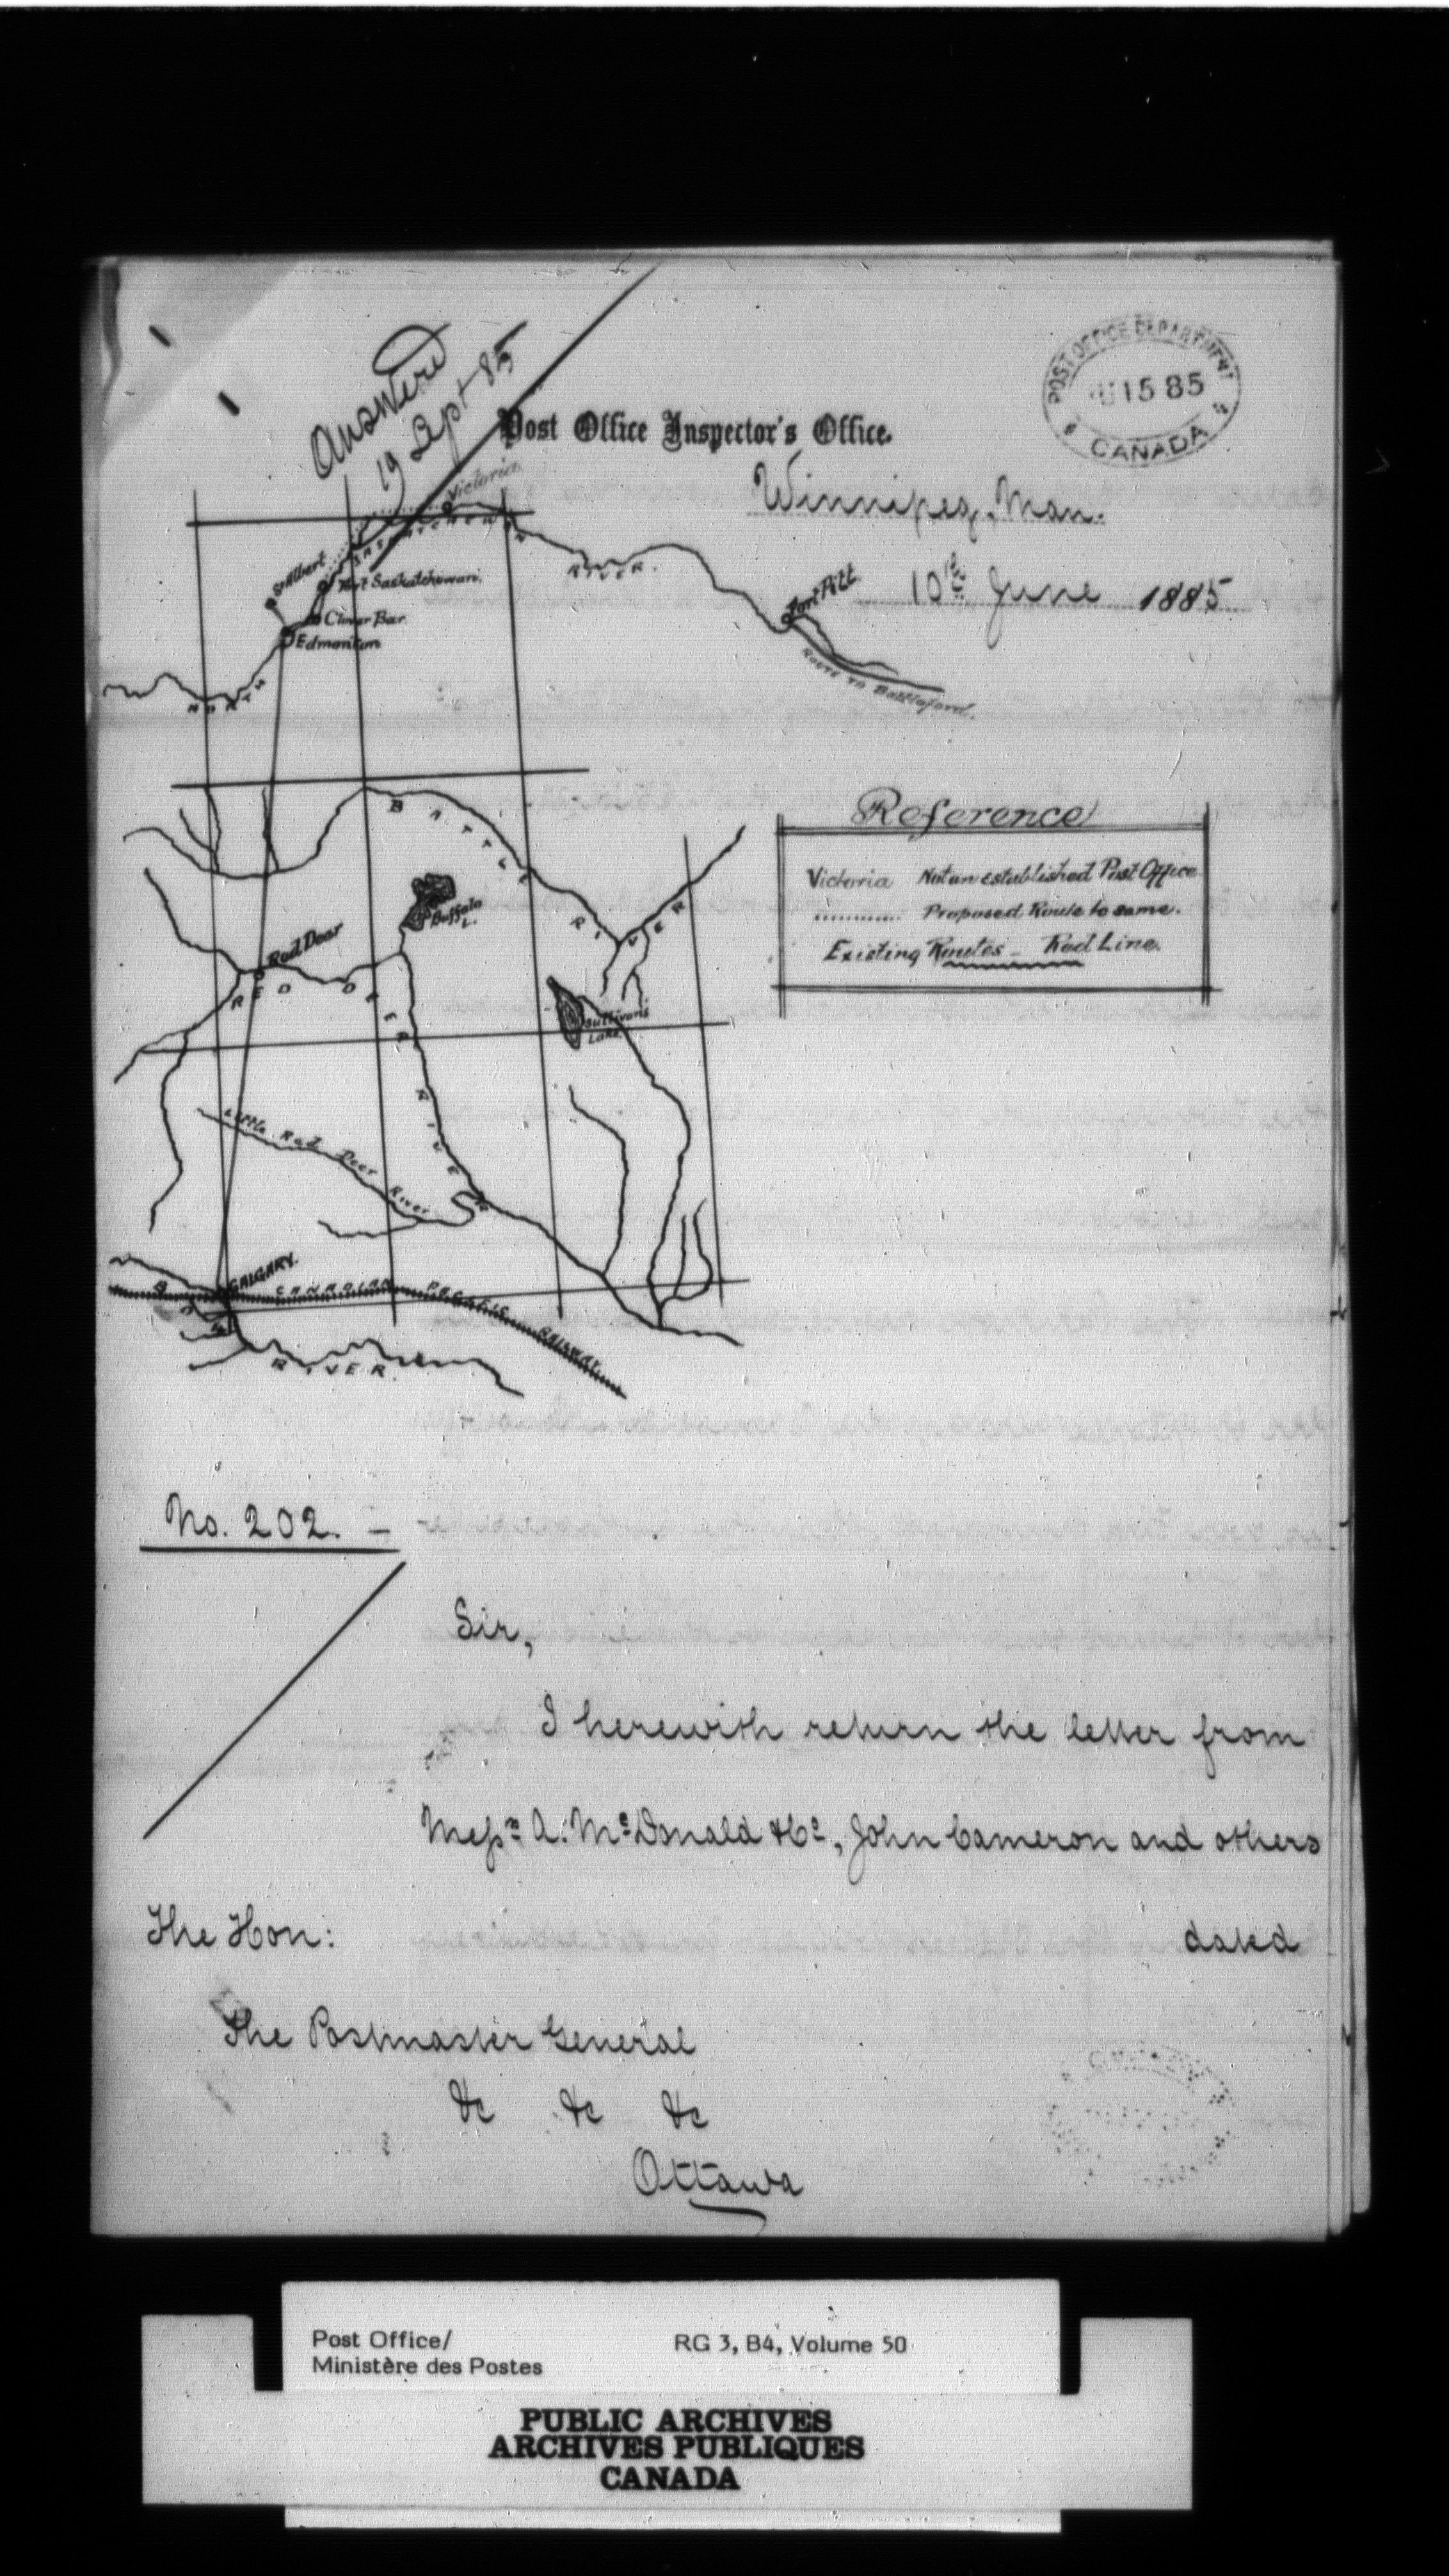 Answered
19 Sept 85
POST OFFICE DEPARTMENT
15 85
CANADA
Post Office Inspector's Office.
Winnipeg, Man.
10th June 1885
Victoria
SASKATCHEWAN
RIVER.
St Albert
Fort Saskatchewan.
Clover Bar.
Edmonton
NORTH
Fort Pitt
Route to Battleford.
BATTLE
RIVER
Buffalo
L.
Reference
Victoria Not an established Post Office.
............ Proposed Route to same.
Existing Routes – Red Line.
Red Deer
RED DEER
RIVER
Sullivan's
Lake
Little Red Deer River
CALGARY.
CANADIAN PACIFIC RAILWAY
BOW
RIVER.
No. 202. –
Sir,
I herewith return the letter from
Messrs A. McDonald & Co, John Cameron and others
The Hon:
dated
The Postmaster General
&c &c &c
Ottawa
Post Office/
Ministère des Postes
RG 3, B4, Volume 50
PUBLIC ARCHIVES
ARCHIVES PUBLIQUES
CANADA